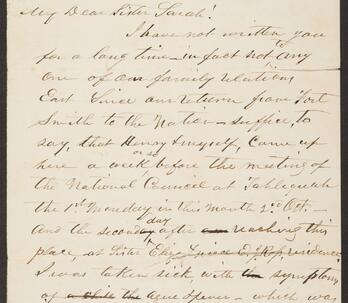 My Dear Sister Sarah!
I have not written you
for a long time - in fact not to any
one of our family relations
East Since our return from Fort
Smith to the Nation - suffice, to
say, that Henry & myself, came up
here a week or so before the meeting of
the National Council at Tahlequah
the 1st Monday in this month 2d Oct.
And the second day after reaching this
place, at Sister Eliza residence
I was taken sick with symptoms
of a chill the ague & fever - which was